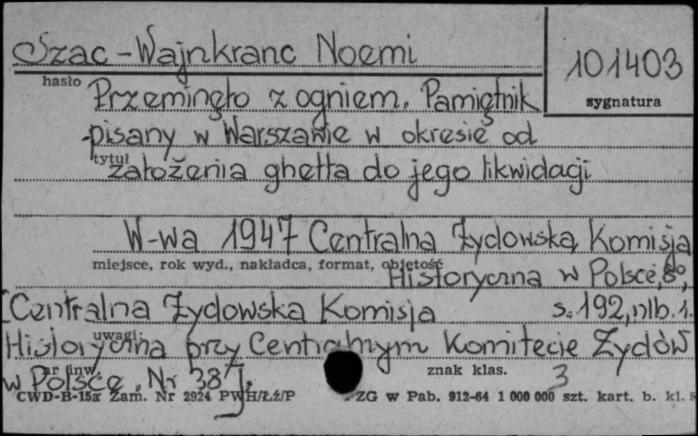 Szac-Wajnkranc Noemi
101403
hasło
sygnatura
Przeminęło z ogniem. Pamiętnik
pisany w Warszawie w okresie od
tytuł
założenia ghetta do jego likwidacji
W-wa 1947 Centralna Żydowska Komisja
miejsce, rok wyd., nakładca, format, objętość
Historyczna w Polsce, 8°,
s. 192, nlb. 1.
[Centralna Żydowska Komisja
uwagi
Historyczna przy Centralnym Komitecie Żydów
nr inw.
znak klas.
w Polsce. Nr 38].
3
CWD-B-15a Zam. Nr 2924 PWH/Łż/P
ZG w Pab. 912-64 1 000 000 szt. kart. b. kl.